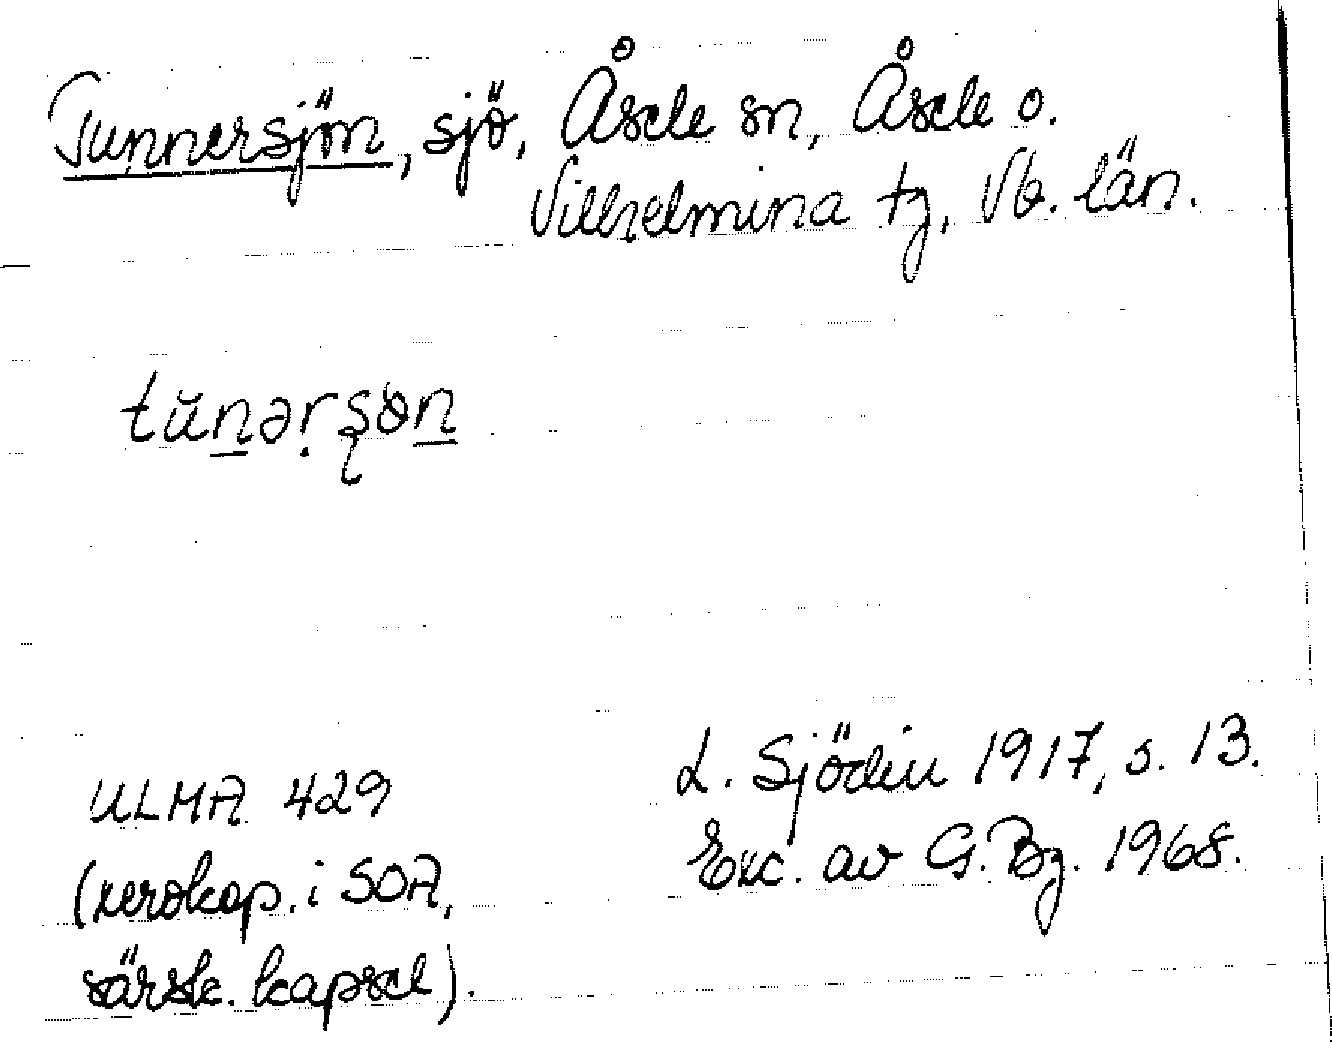 Tunnersjön, sjö, Åsele sn, Åsele o.
Vilhelmina tg, Vb. län.
tŭn̲ərʂön̲
ULMA 429
(xerokop. i SOA,
särsk. kapsel).
L. Sjödin 1917, s. 13.
Exc. av G. Bg. 1968.